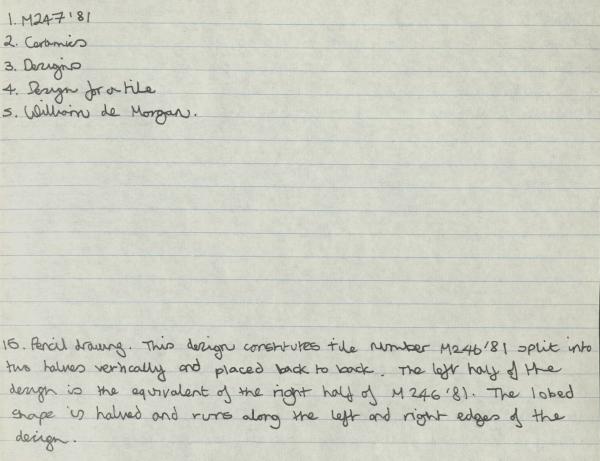 1. M247'81
2. Ceramics
3. Designs
4. Design for a tile
5. William de Morgan.
15. Pencil drawing. This design constitutes tile number M246'81 split into
two halves vertically and placed back to back. The left half of the
design is the equivalent of the right half of M246'81. The lobed
shape is halved and runs along the left and right edges of the
design.